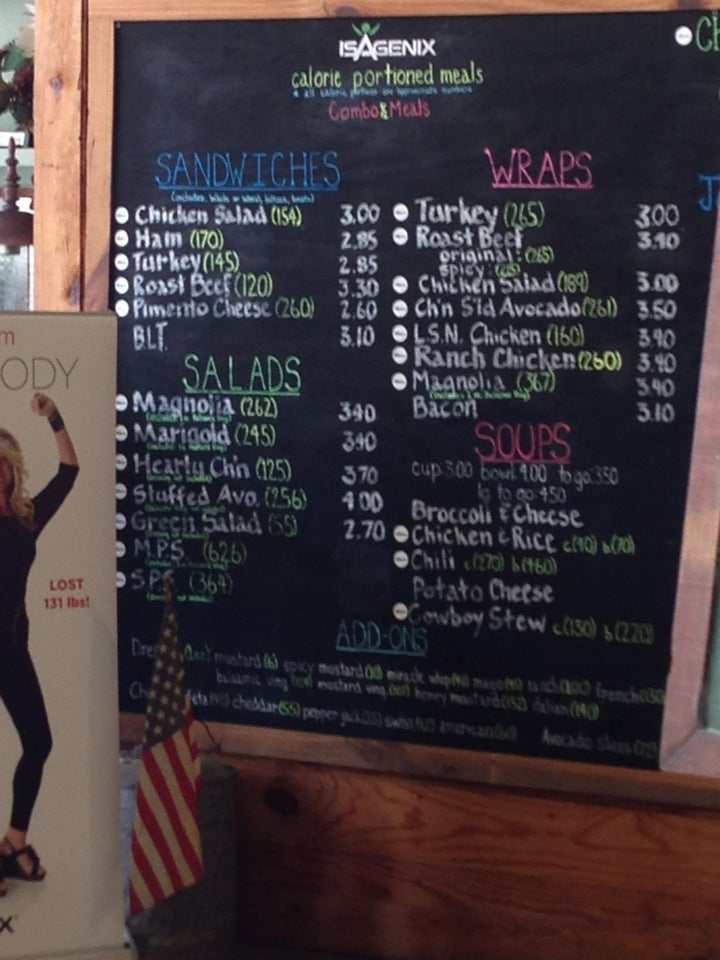 ISAGENIX
calorie portioned meals
Combo Meals
SANDWICHES
Chicken Salad (154) 3.00
Ham (170) 2.85
Turkey (145) 2.85
Roast Beef (120) 3.30
Pimento Cheese (260) 2.60
B.L.T. 3.10
SALADS
Magnolia (262) 3.90
Marigold (245) 3.90
Hearty Ch'n (125) 3.70
Stuffed Avo. (256) 4.00
Green Salad (55) 2.70
M.P.S. (626)
S.P.S (364)
WRAPS
Turkey (265) 3.00
Roast Beef 3.90
original: (265)
spicy
Chicken Salad (189) 3.00
Ch'n S'ld Avocado (261) 3.50
L.S.N. Chicken (160) 3.90
Ranch Chicken (260) 3.90
Magnolia (367) 3.90
Bacon 3.10
SOUPS
cup 3.00 bowl 4.00 to go 3.50
lg to go 4.50
Broccoli & Cheese
Chicken & Rice c(90) b(170)
Chili c(270) b(460)
Potato Cheese
Cowboy Stew c(130) b(220)
ADD-ONS
mustard (6) spicy mustard miracle whip mayo ranch french
balsamic ving mustard ving honey mustard italian
feta cheddar pepper jack swiss american Avocado slices
ODY
LOST
131 lbs!